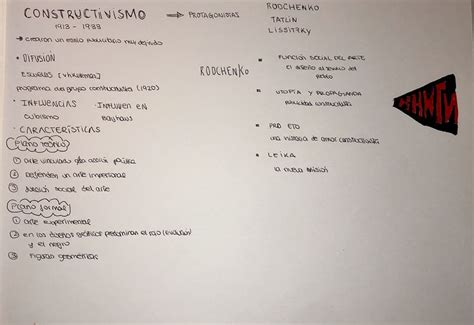 CONSTRUCTIVISMO → PROTAGONISTAS
RODCHENKO
TATLIN
LISSITZKY
1913 - 1933
→ crearon un estilo publicitario muy definido
• DIFUSIÓN
ESCUELAS (vkhutemas)
programa del grupo constructivista (1920)
• INFLUENCIAS · INFLUYEN EN
cubismo bauhaus
• CARACTERÍSTICAS
Plano teórico
① arte vinculado a la acción política
② Defienden un arte impersonal
③ función social del arte
Plano formal
① arte experimental
② en los diseños gráficos predominan el rojo (evolución)
y el negro
③ figuras geométricas
RODCHENKO
• FUNCIÓN SOCIAL DEL ARTE
el diseño al servicio del
• UTOPÍA Y PROPAGANDA
publicidad constructivista
• PRO ETO
una historia de amor constructivista
• LEIKA
la nueva misión